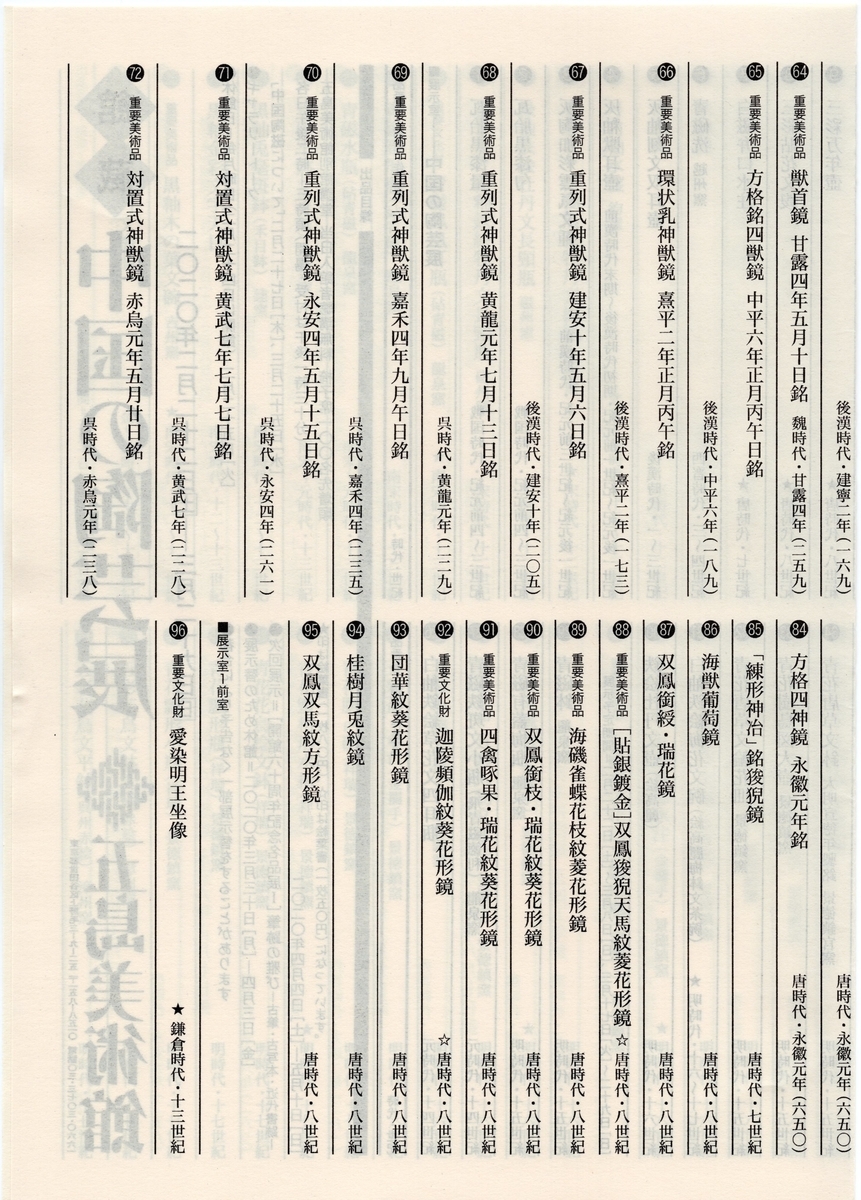 後漢時代・建寧二年(一六九)
64 重要美術品 獣首鏡 甘露四年五月十日銘 魏時代・甘露四年(二五九)
65 重要美術品 方格銘四獣鏡 中平六年正月丙午日銘
後漢時代・中平六年(一八九)
66 重要美術品 環状乳神獣鏡 熹平二年正月丙午銘
後漢時代・熹平二年(一七三)
67 重要美術品 重列式神獣鏡 建安十年五月六日銘
後漢時代・建安十年(二〇五)
68 重要美術品 重列式神獣鏡 黄龍元年七月十三日銘
呉時代・黄龍元年(二二九)
69 重要美術品 重列式神獣鏡 嘉禾四年九月午日銘
呉時代・嘉禾四年(二三五)
70 重要美術品 重列式神獣鏡 永安四年五月十五日銘
呉時代・永安四年(二六一)
71 重要美術品 対置式神獣鏡 黄武七年七月七日銘
呉時代・黄武七年(二二八)
72 重要美術品 対置式神獣鏡 赤烏元年五月廿日銘
呉時代・赤烏元年(二三八)
唐時代・永徽元年(六五〇)
84 方格四神鏡 永徽元年銘 唐時代・永徽元年(六五〇)
85 「練形神冶」銘狻猊鏡 唐時代・七世紀
86 海獣葡萄鏡 唐時代・八世紀
87 双鳳銜綬・瑞花鏡 唐時代・八世紀
88 重要美術品 [貼銀鍍金]双鳳狻猊天馬紋菱花形鏡 ☆ 唐時代・八世紀
89 重要美術品 海磯雀蝶花枝紋菱花形鏡 唐時代・八世紀
90 重要美術品 双鳳銜枝・瑞花紋葵花形鏡 唐時代・八世紀
91 重要美術品 四禽啄果・瑞花紋葵花形鏡 唐時代・八世紀
92 重要文化財 迦陵頻伽紋葵花形鏡 ☆ 唐時代・八世紀
93 団華紋葵花形鏡 唐時代・八世紀
94 桂樹月兎紋鏡 唐時代・八世紀
95 双鳳双馬紋方形鏡 唐時代・八世紀
■展示室1前室
96 重要文化財 愛染明王坐像 ★ 鎌倉時代・十三世紀